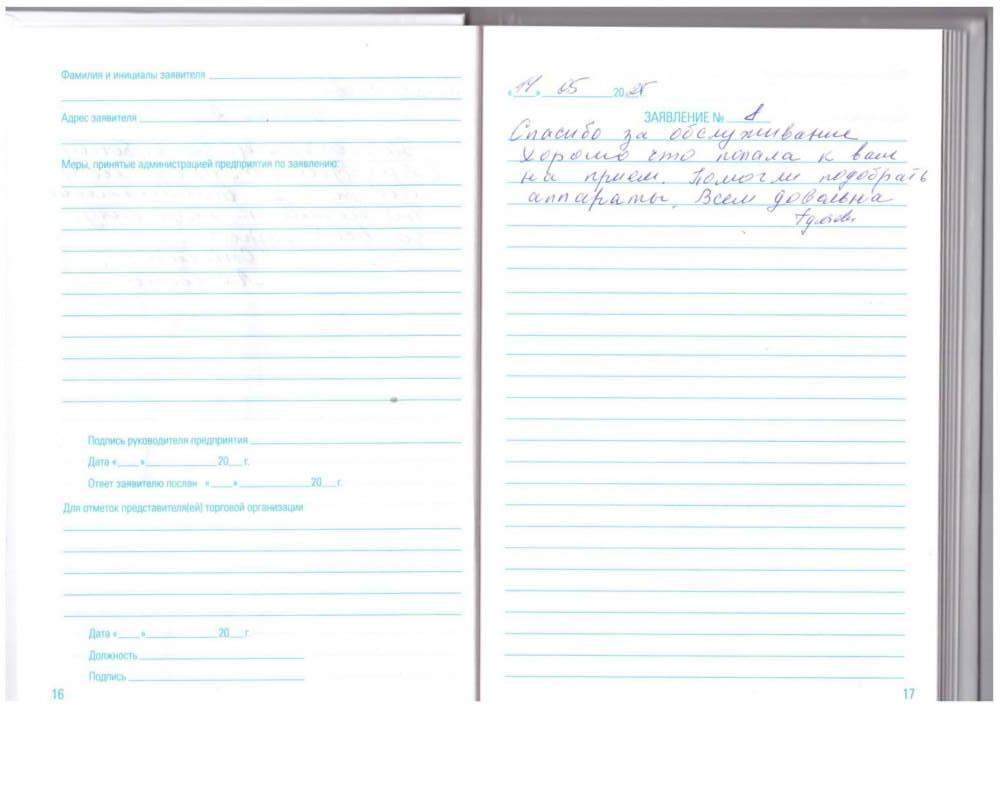 Фамилия и инициалы заявителя
Адрес заявителя
Меры, принятые администрацией предприятия по заявлению:
Подпись руководителя предприятия
Дата «___» ___ 20__ г.
Ответ заявителю послан «___» ___ 20__ г.
Для отметок представителя(ей) торговой организации
Дата «___» ___ 20__ г.
Должность
Подпись
16
«14» 05 20
ЗАЯВЛЕНИЕ № 8
Спасибо за обслуживание
Хорошо что попала к вам
на прием. Помогли подобрать
аппараты. Всем довольна
17